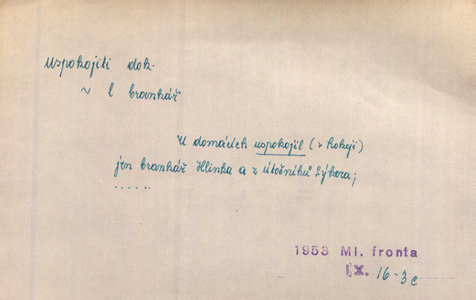 uspokojiti dok.
~ l brankář
U domácích uspokojil (v hokeji)
jen brankář Hlinka a z útočníků Sýkora;
......
1953 Ml. fronta
IX. 16-3c